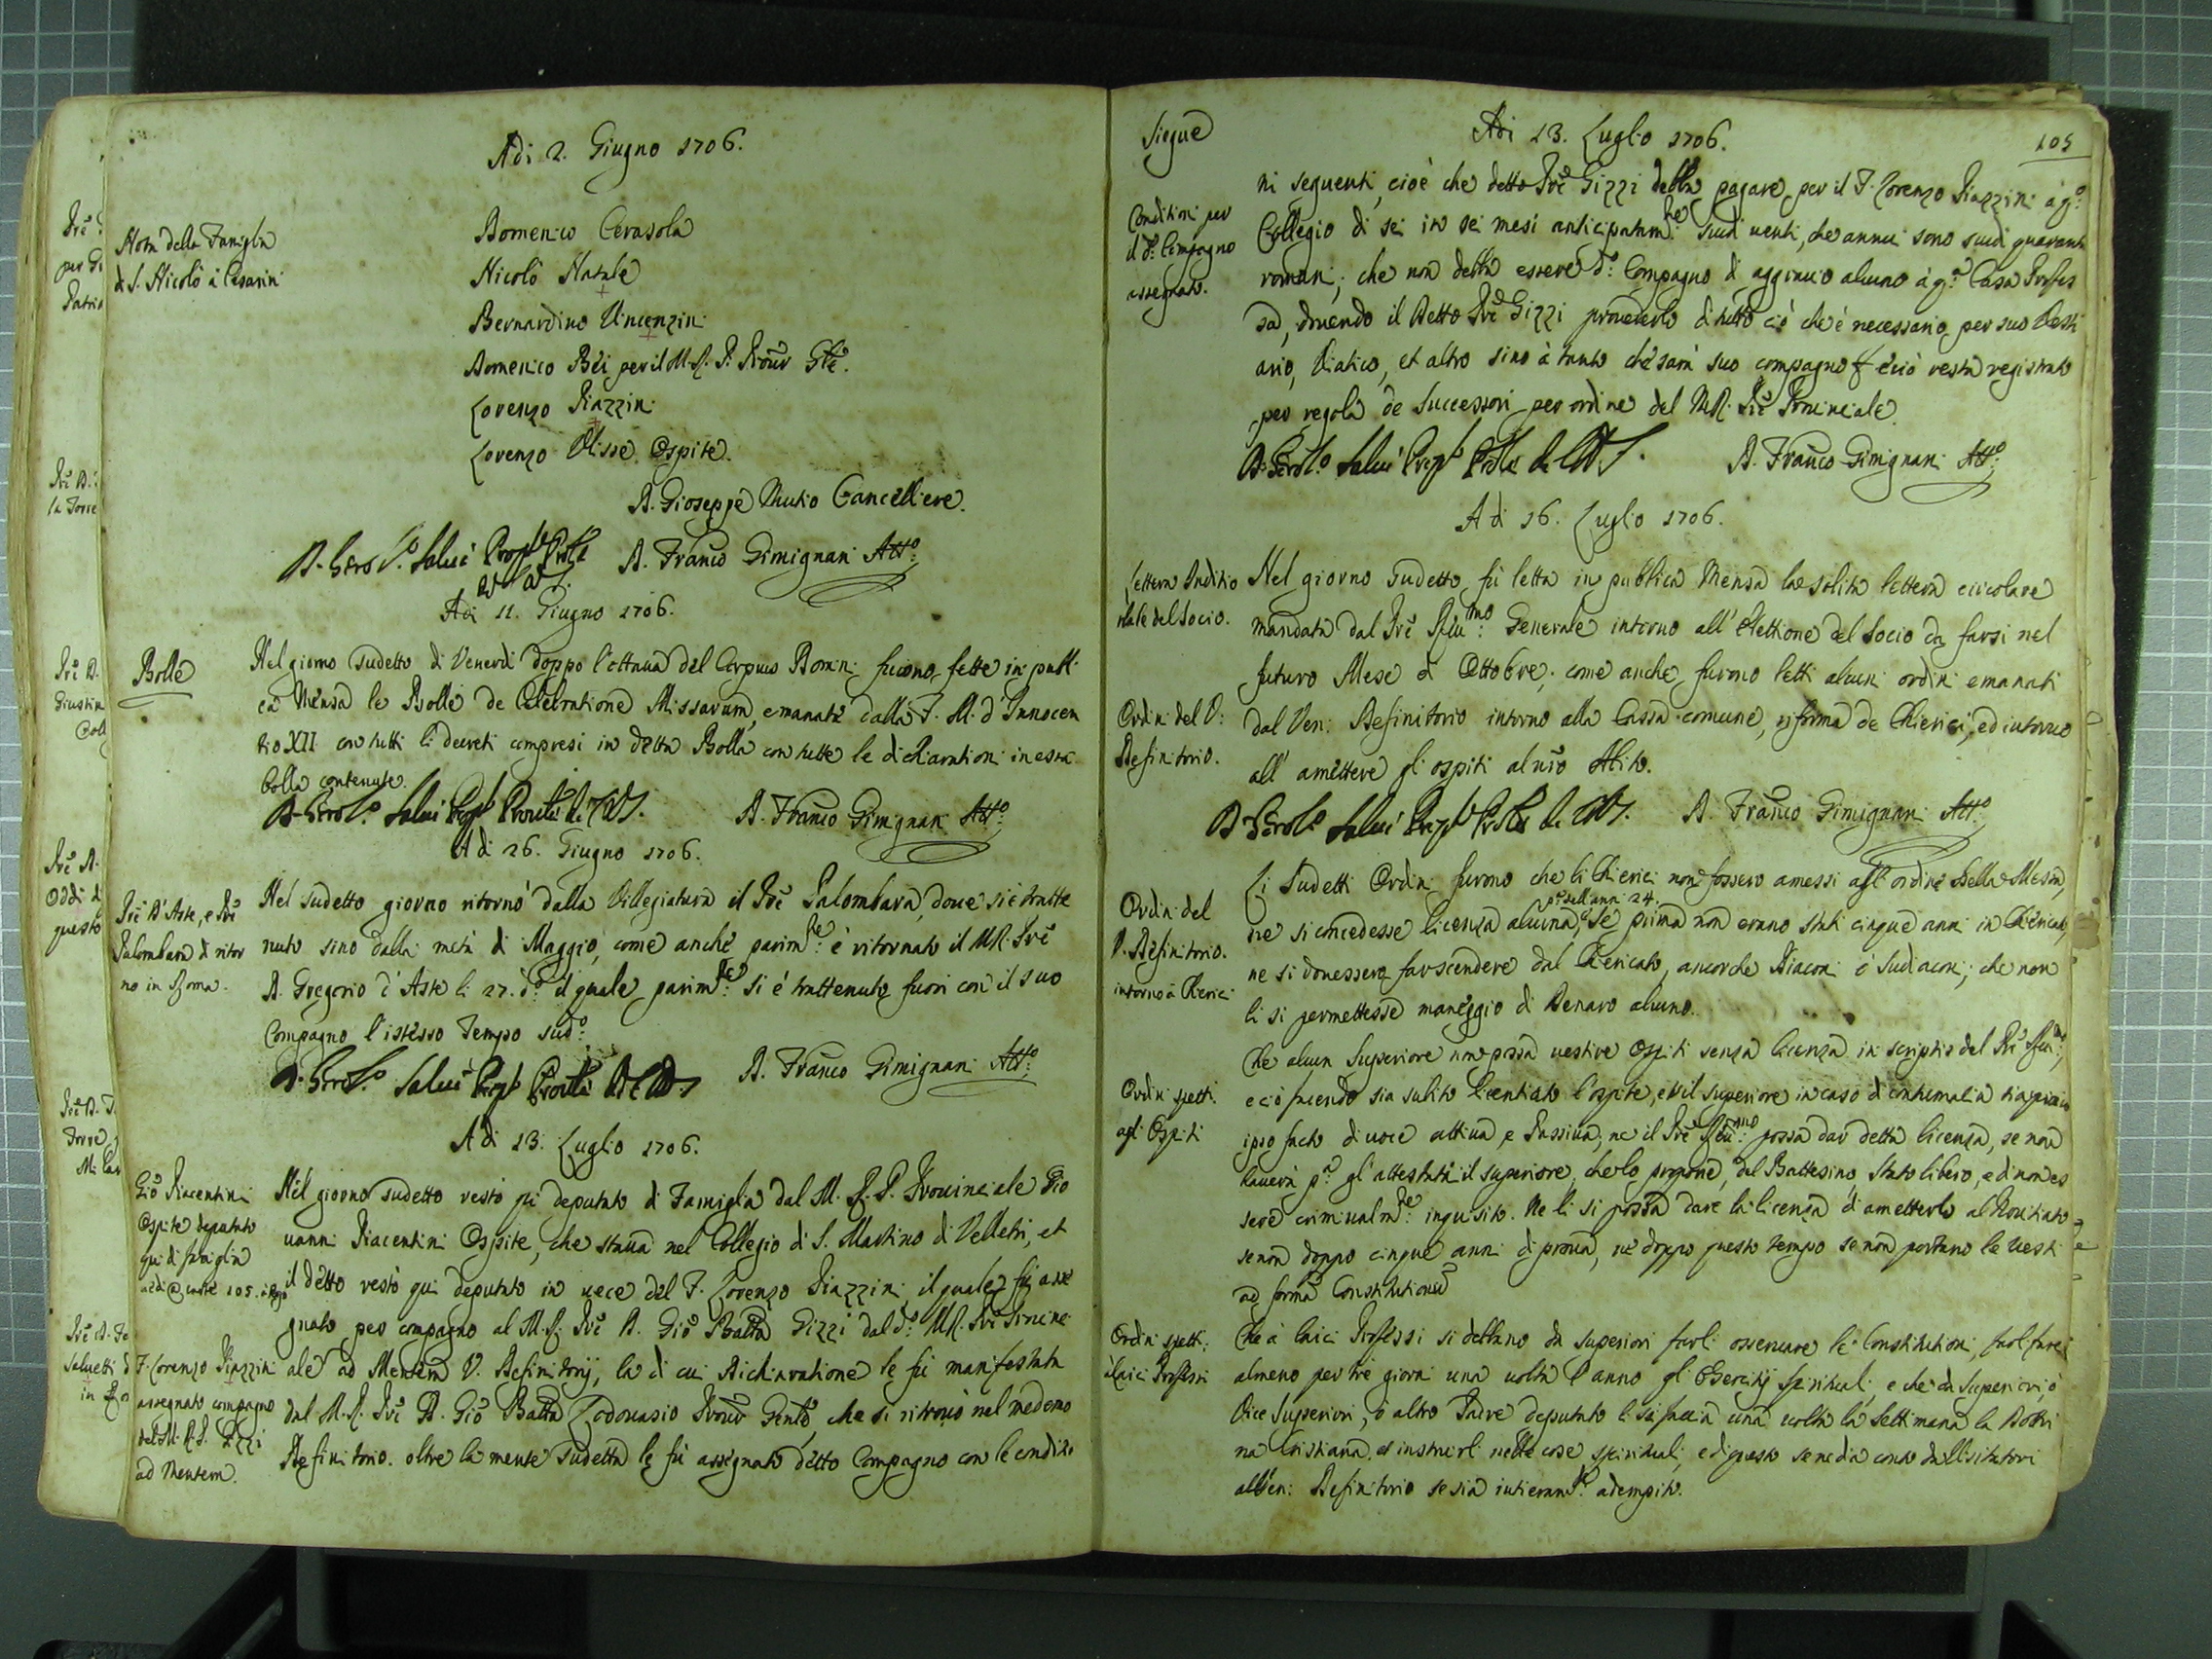 Adi 2. Giugno 1706.
Nota della Famiglia
di S. Nicolò à Cesarini
Domenico Cerasola
Nicolò Natale
Bernardino Vincenzini
Domenico Bei per il M. R. P. Prour Gnle.
Lorenzo Piazzini
Lorenzo Ulisse Ospite.
D. Gioseppe Mutio Cancelliere.
D. Gerol.o Salvi Prep.to
D. Franco Gimignani Att.o
Adi 11. Giugno 1706.
Bolle
Nel giorno sudetto di Venerdi doppo l'ottaua del Corpus Domini furono lette in publi
ca Mensa le Bolle de Celebratione Missarum, emanate dalla F. M. d'Innocen
tio XII con tutti li decreti compresi in detta Bolla con tutte le dichiarationi in essa
Bolla contenute.
D. Gerol.o Salvi Prep.to
D. Franco Gimignani Att.o
Adi 26. Giugno 1706.
Pre D'Aste, e Pre
Palombara di ritor
no in Roma.
Nel sudetto giorno ritornò dalla Villegiatura il Pre Palombara, doue si è tratte
nuto sino dalla metà di Maggio, come anche parim.te è ritornato il M.R. Pre
D. Gregorio d'Aste li 27. d.o il quale parim.te si è trattenuto fuori con il suo
Compagno l'istesso tempo sud.o
D. Gerol.o Salvi Prep.to
D. Franco Gimignani Att.o
Adi 13. Luglio 1706.
Gio Piacentini
Ospite deputato
qui di famiglia
Nel giorno sudetto restò qui deputato di Famiglia dal M. R. P. Prouinciale Gio
uanni Piacentini Ospite, che staua nel Collegio di S. Martino di Velletri, et
il detto restò qui deputato in uece del F. Lorenzo Piazzini, il quale fù asse
gnato per compagno al M. R. Pre D. Gio Batta Gizzi dal d.o M.R. Pre Prouinci
F. Lorenzo Piazzini
assegnato compagno
del M. R. P. Gizzi
ad Mentem.
ale ad Mentem V. Definitorij, la di cui Dichiaratione le fù manifestata
dal M. R. Pre D. Gio Batta Lodouasio Prour Genle, che si ritrouò nel medemo
Definitorio. oltre la mente sudetta le fù assegnato detto Compagno con le conditio
Siegue
Adi 13. Luglio 1706.
105
Conditioni per
il d.o Compagno
assegnato.
ni seguenti, cioè che detto Pre Gizzi debba pagare per il F. Lorenzo Piazzini à q.o
Collegio di sei in sei mesi anticipatam.te scudi uenti, che annui sono scudi quaranta
romani; che non debba essere d.o Compagno di aggrauio alcuno à q.a Casa Profes
sa, douendo il detto Pre Gizzi prouederlo di tutto ciò che è necessario per suo Vesti
ario, Viatico, et altro sino à tanto che sarà suo compagno e ciò resta registrato
per regola de Successori per ordine del M.R. Pre Prouinciale.
D. Gerol.o Salvi Prep.to
D. Franco Gimignani Att.o
Adi 16. Luglio 1706.
Lettera Inditio
nale del Socio.
Nel giorno sudetto fù letta in publica Mensa la solita lettera circolare
mandata dal Pre R̃mo Generale intorno all'Elettione del Socio da farsi nel
futuro Mese di Ottobre; come anche furono letti alcuni ordini emanati
Ordini del V:
Definitorio.
dal Ven: Definitorio intorno alla Cassa comune, riforma de Chierici, ed intorno
all'amettere gl'ospiti al nro Abito.
D. Gerol.o Salvi Prep.to
D. Franco Gimignani Att.o
Ordini del
V. Definitorio.
intorno à Chierici
Li sudetti Ordini furono che li Chierici non fossero amessi all'ordine della Messa,
p.a dell'anni 24.
ne si concedesse licenza alcuna, se prima non erano stati cinque anni in Chiericato,
ne si douessero far scendere dal Chiericato, ancorche Diaconi ò Sudiaconi; che non
li si permettesse maneggio di Denaro alcuno.
Ordini spett.
agl'Ospiti
Che alcun Superiore non possa uestire Ospiti senza licenza in scriptis del Pre
e ciò facendo sia subito licentiato l'ospite, et il superiore in caso di contumatia
ipso facto di uoce attiua, e Passiua; ne il Pre possa dar detta licenza, se non
hauerà p.a gl'attestati il superiore, che lo propone, del Battesimo, stato libero, e di non es
sere criminalm.te inquisito. Ne li si possa dare la licenza d'ametterlo al Nouitiato
se non doppo cinque anni di proua, ne doppo questo tempo se non portano le Vesti
ad formã Constitutionũ
Ordini spett:
à laici Professi
Che à laici Professi si debbano da superiori farli osseruare le Constitutioni, farl fare
almeno per tre giorni una uolta l'anno gl'Esercitij Spirituali, e che da Superiori, ò
Vice Superiori, ò altro Padre deputato li si faccia una uolta la Settimana la Dottri
na Cristiana, et instruirli nelle cose spirituali, e di questo se ne dia conto da Visitatori
all Ven: Definitorio se sia intieram.te adempito.